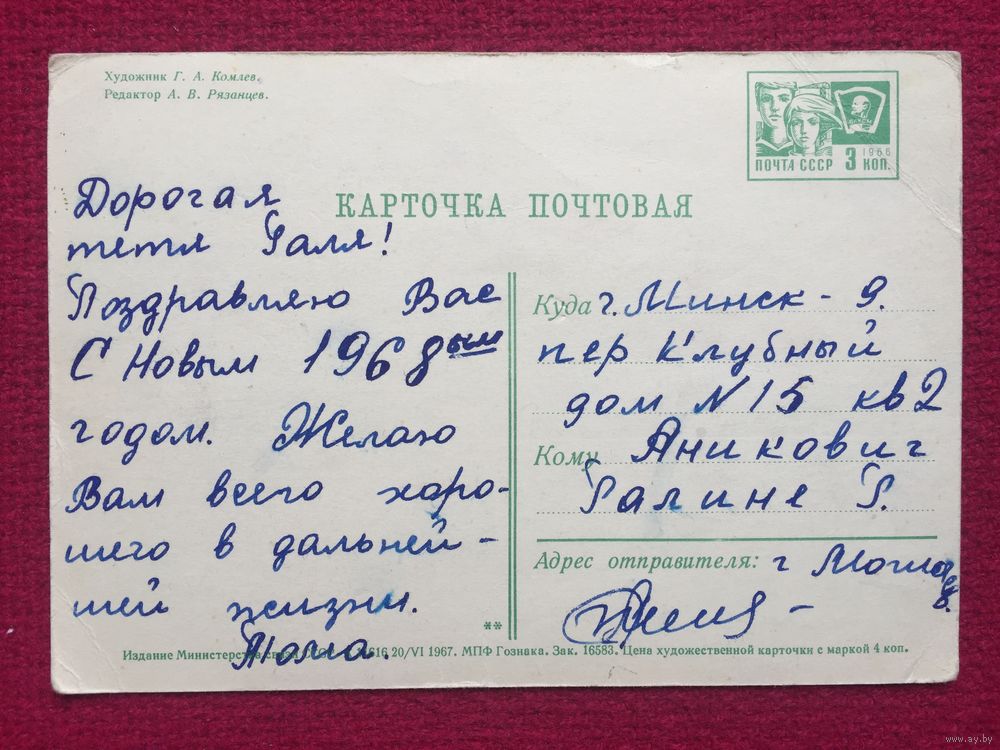 Художник Г. А. Комлев.
Редактор А. В. Рязанцев.
ВЛКСМ
1966
ПОЧТА СССР 3 КОП.
КАРТОЧКА ПОЧТОВАЯ
Дорогая
тетя Галя!
Поздравляю Вас
С Новым 1968ым
годом. Желаю
Вам всего хоро-
шего в дальней-
шей жизни.
Куда г. Минск - 9.
пер Клубный
дом N 15 кв 2
Кому Аникович
Галине Г.
Адрес отправителя: г Могилев.
**
Издание Министерства связи 20/VI 1967. МПФ Гознака. Зак. 16583. Цена художественной карточки с маркой 4 коп.
www.ay.by